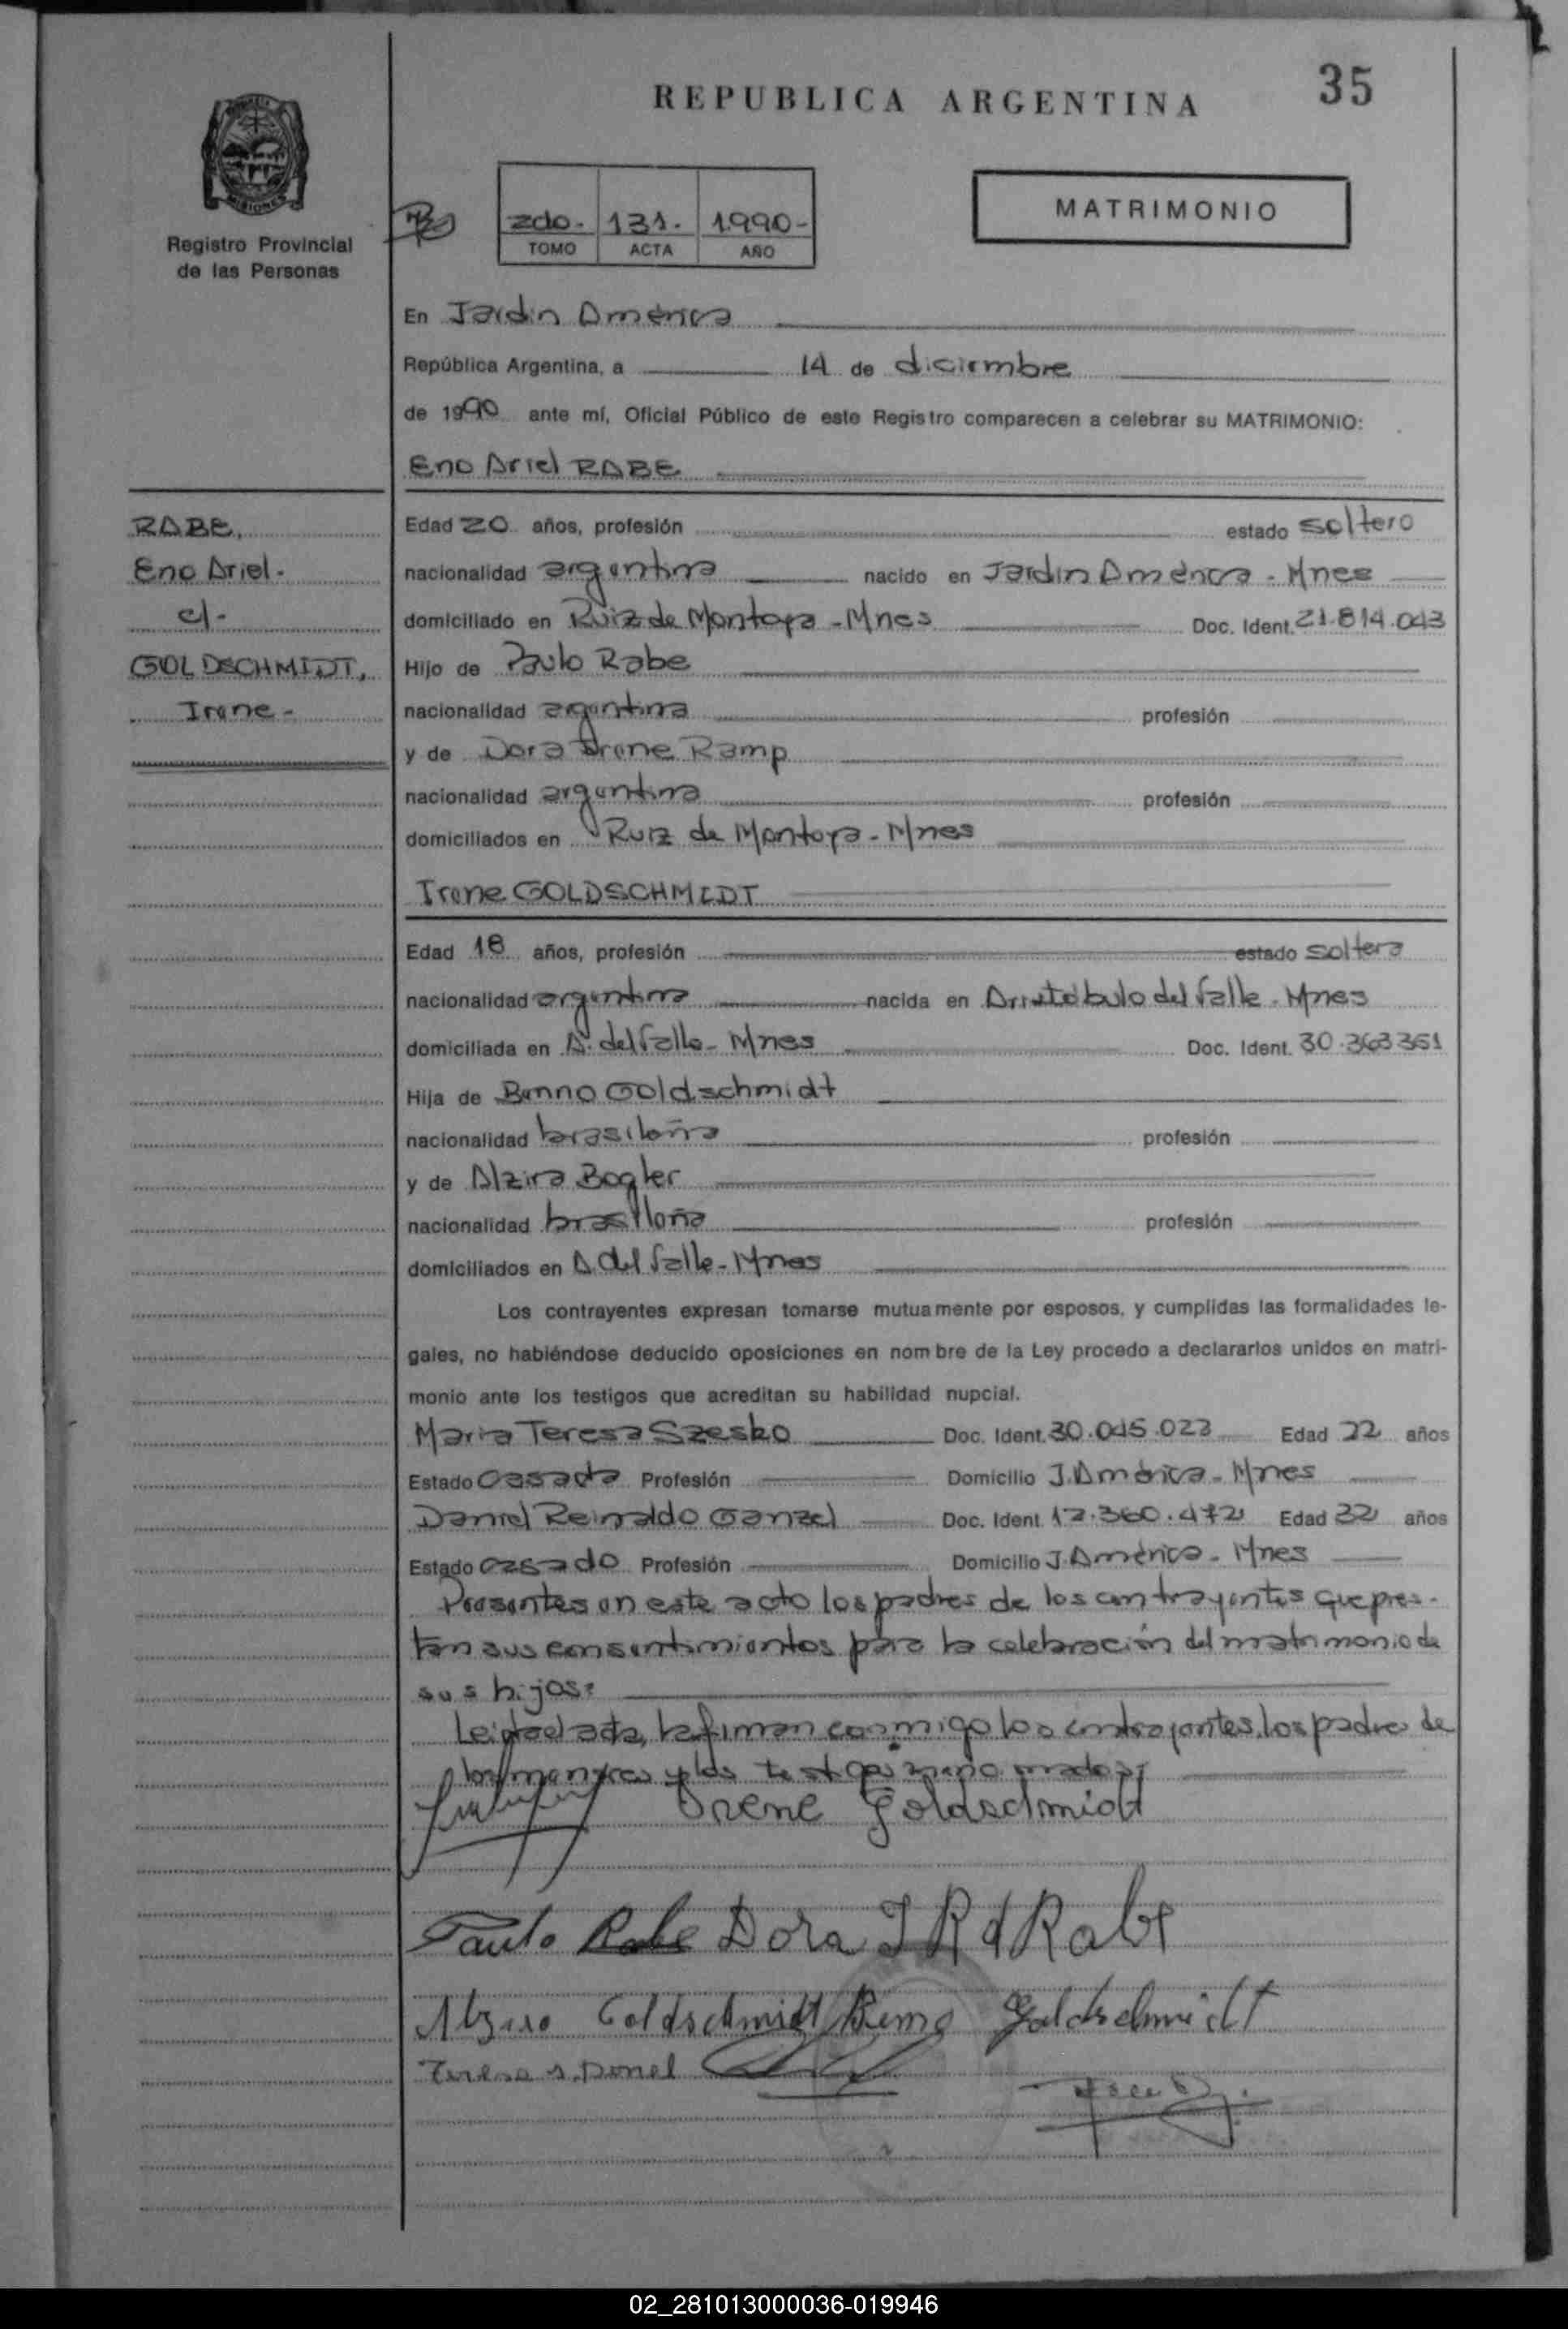 35
REPUBLICA ARGENTINA
MISIONES
Registro Provincial
de las Personas
2do. 131. 1990-
TOMO ACTA AÑO
MATRIMONIO
En Jardin América
República Argentina, a 14 de diciembre
de 1990 ante mí, Oficial Público de este Registro comparecen a celebrar su MATRIMONIO:
Eno Ariel RABE
RABE,
Eno Ariel.
c/-
GOLDSCHMIDT,
Irene-
Edad 20 años, profesión estado soltero
nacionalidad argentina nacido en Jardin América - Mnes
domiciliado en Ruiz de Montoya - Mnes Doc. Ident. 21.814.043
Hijo de Paulo Rabe
nacionalidad argentina profesión
y de Dora Irene Ramp
nacionalidad argentina profesión
domiciliados en Ruiz de Montoya - Mnes
Irene GOLDSCHMIDT
Edad 18 años, profesión estado soltera
nacionalidad argentina nacida en Aristóbulo del Valle - Mnes
domiciliada en A. del Valle - Mnes Doc. Ident. 30.363361
Hija de Benno Goldschmidt
nacionalidad brasileña profesión
y de Alzira Bogler
nacionalidad brasileña profesión
domiciliados en A. del Valle - Mnes
Los contrayentes expresan tomarse mutuamente por esposos, y cumplidas las formalidades le-
gales, no habiéndose deducido oposiciones en nombre de la Ley procedo a declararlos unidos en matri-
monio ante los testigos que acreditan su habilidad nupcial.
Maria Teresa Szesko Doc. Ident. 30.045.023 Edad 22 años
Estado casada Profesión Domicilio J. América - Mnes
Daniel Reinaldo Ganzel Doc. Ident. 12.360.472 Edad 32 años
Estado casado Profesión Domicilio J. América - Mnes
Presentes en este acto los padres de los contrayentes que pres-
tan sus consentimientos para la celebración del matrimonio de
sus hijos:
Leida el acta, la firman conmigo los contrayentes, los padres de
los menores y los testigos
Irene Goldschmidt
Paulo Rabe Dora I R d Rabe
Goldschmidt Benno Goldschmidt
Teresa S.
02_281013000036-019946